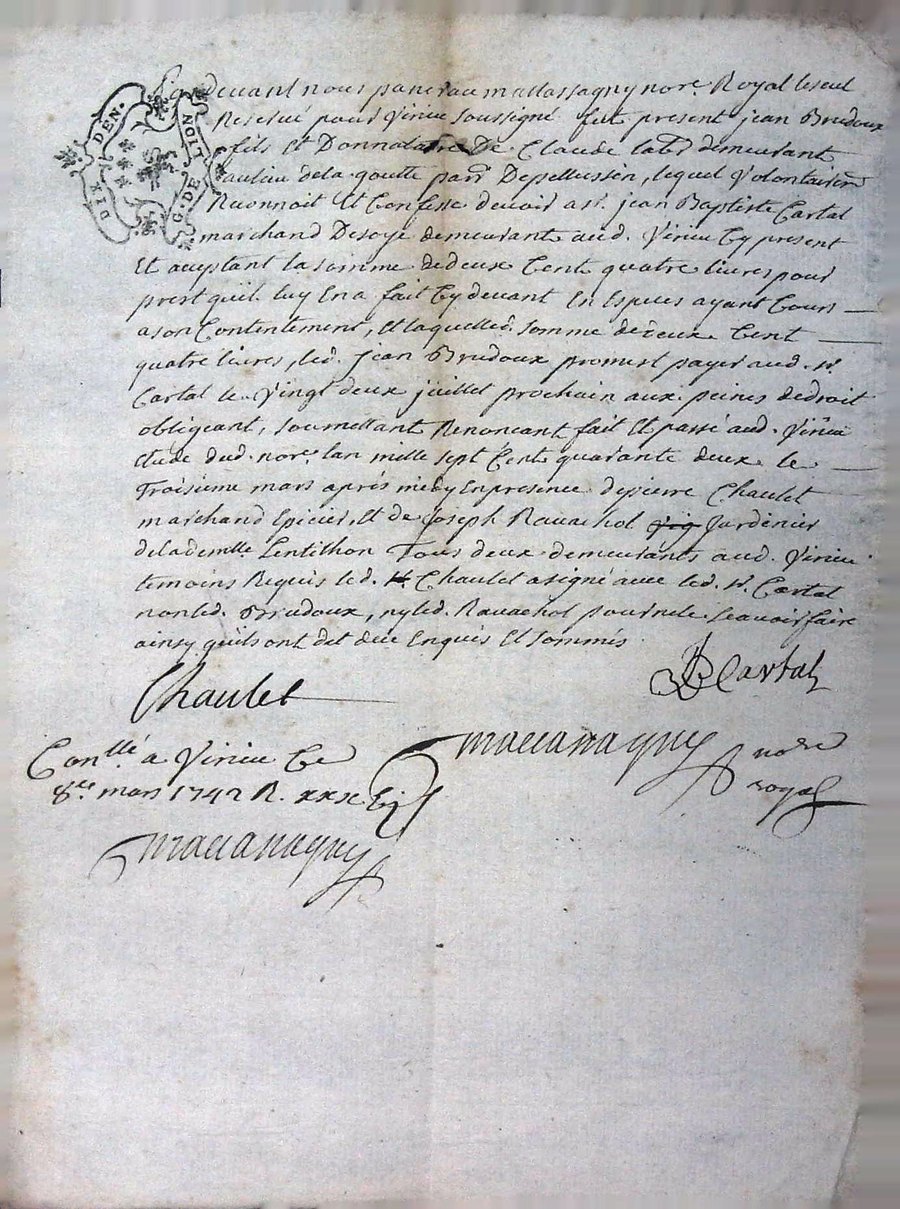 DIX DEN.
G. DE NOIT
Pardevant nous panerau mattassagny nore. Royal le seul
Reservé pour Virieu soussigné fut present jean Brudoux
fils Et Donnataire De Claude labr. demeurant
au lieu de la goutte parr. De pellussin, lequel Volontairemt.
Reconnoit Et Confesse devoir a sr. jean Baptiste Cartal
marchand De soye demeurant aud. Virieu Cy present
Et aceptant la somme de deux Cent quatre livres pour
prest quil luy En a fait Cy devant En Especes ayant Cours
a son Contentement, Et laquelle d. somme de deux Cent
quatre livres, led. jean Brudoux promest payer aud. sr.
Cartal le Vingt deux juillet prochain aux peines de droit
obligeant, soumettant Renoncant fait Et passé aud. Virieu
Etude dud. nore. lan mille sept Cent quarante deux le
Troisieme mars après midy En presence de pierre Chaulet
marchand Epicier, Et de Joseph Ravachol Jardinier
de la demlle. Lentithon Tous deux demeurants aud. Virieu
temoins Requis led. Chaulet a signé avec led. sr. Cartal
non led. Brudoux, ny led. Ravachol pour ne le scavoir faire
ainsy quils ont dit de ce Enquis Et sommés
Chaulet
JB Cartal
Conllé a Virieu Ce
8me mars 1742 R.
maccassagny nore
royal
maccassagny